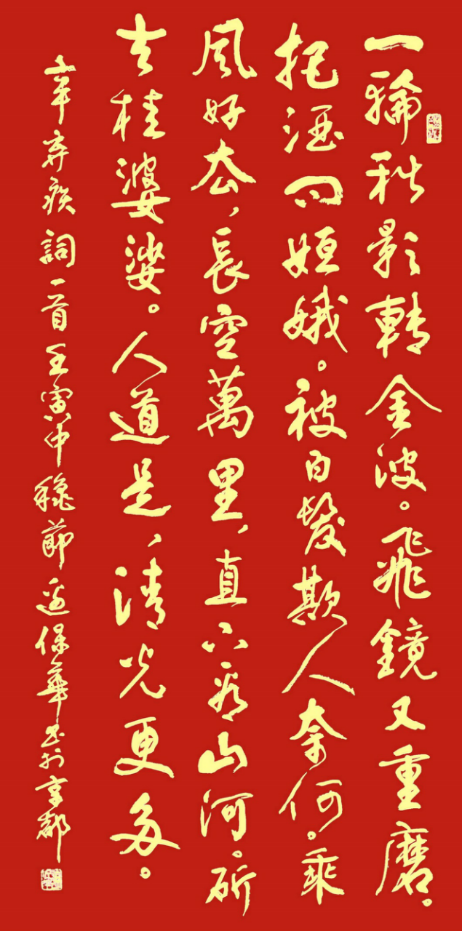 一輪秋影轉金波。飛鏡又重磨。
把酒问姮娥。被白髮欺人奈何。乘
風好厺、長空萬里,直下看山河。斫
去桂婆娑。人道是、清光更多。
辛弃疾詞一首壬寅中穐節保華书於京都